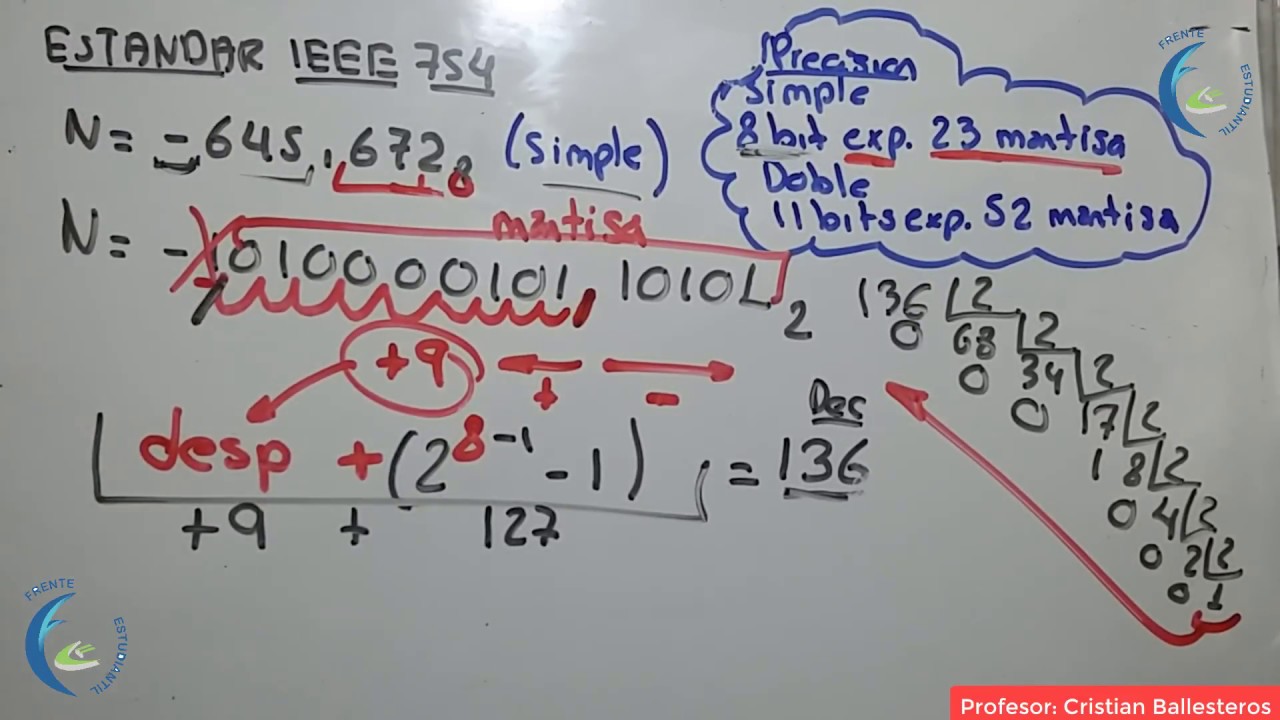 ESTANDAR IEEE 754
N= -645,672₈ (simple)
Precision
Simple
8 bit exp. 23 mantisa
Doble
11 bits exp. 52 mantisa
mantisa
N= -1010000101,10101₂
+9
+ -
desp + (2⁸⁻¹ - 1) = 136
Dec
+9 + 127
136 2
0 68 2
0 34 2
0 17 2
1 8 2
0 4 2
0 2 2
0 1
FRENTE ESTUDIANTIL
FRENTE ESTUDIANTIL
Profesor: Cristian Ballesteros